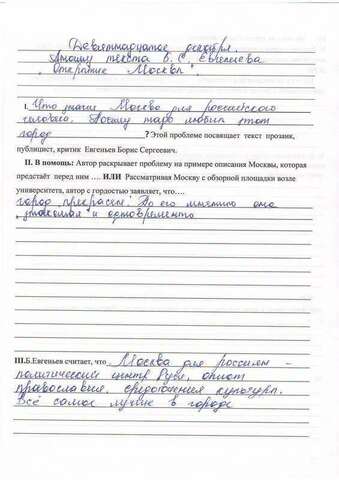 Девятнадцатое декабря.
Анализ текста Б. С. Евгеньева
"Открытие Москвы".
I. Что значит Москва для российского
человека. Почему народ любит этот
город ? Этой проблеме посвящает текст прозаик,
публицист, критик Евгеньев Борис Сергеевич.
II. В помощь: Автор раскрывает проблему на примере описания Москвы, которая
предстаёт перед ним .... ИЛИ Рассматривая Москву с обзорной площадки возле
университета, автор с гордостью заявляет, что....
город прекрасны. По его мнению она
"знакомая" и одновременно
III.Б.Евгеньев считает, что Москва для россиян -
политический центр Руси, оплот
православия, средоточения культуры.
Всё самое лучшее в городе